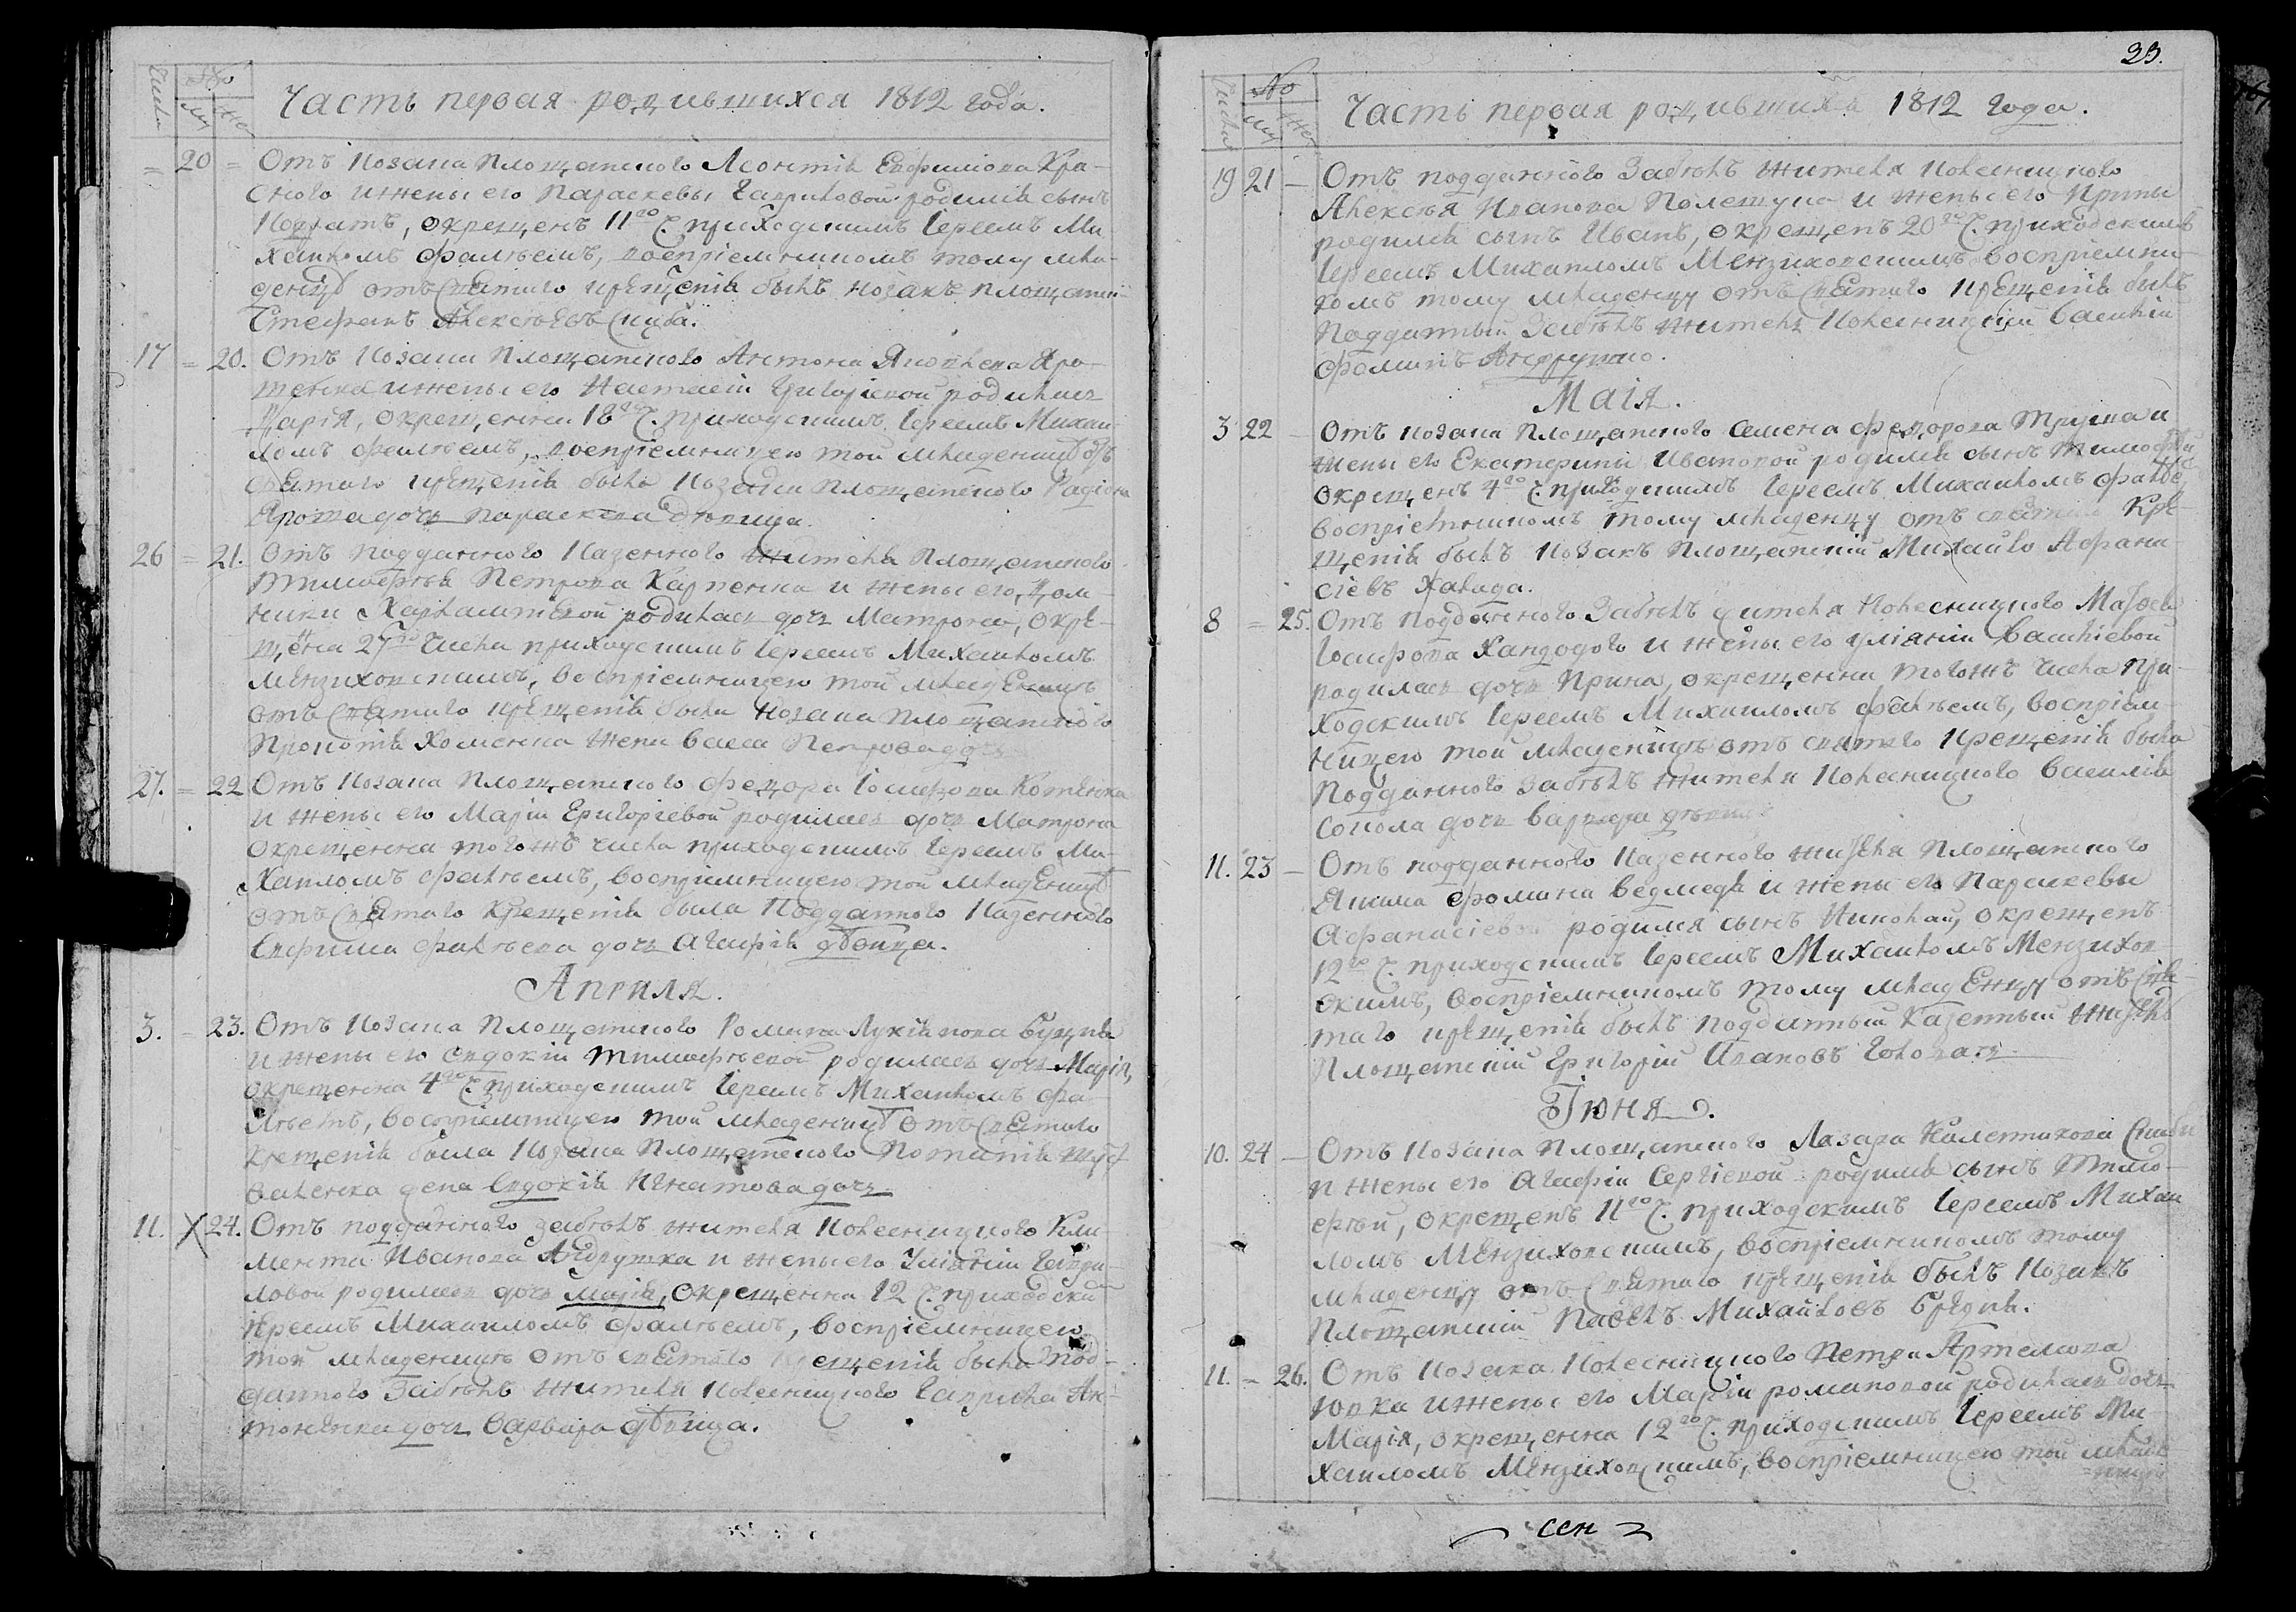 Числа
№
му
же
Часть первая родившихся 1812 года.
= 20 = Отъ козака Площанского Леонтія Евфимова Кра-
сного и жены его Параскевы Гавриловой родился сынъ
Кодратъ, окрещенъ 11го Ч. приходскимъ Іереемъ Ми-
хаиломъ Фалѣемъ, воспріемникомъ тому мла-
денцу отъ святаго крещенія былъ козакъ площанскій
Стефанъ Алексѣевъ
17 = 20. Отъ козака Площанского Антона Яковлева Яро-
и жены его Настасіи Григоріевой родилась
Дарія, окрещенна 18го Ч. приходскимъ Іереемъ Михаи-
ломъ Фалѣемъ, воспріемницею той младеницѣ отъ
святаго крещенія была Козака Площанского Радіона
Яроша дочь Параскева дѣвица.
26 = 21. Отъ подданного Казенного жителя Площанского
Тимофея Петрова Карпенка и жены его, Дом-
ники Харлампіевой родилась дочь Матрона, окре-
щена 27го числа приходскимъ Іереемъ Михаиломъ
Мензиховскимъ, воспріемницею той младеницѣ
отъ святаго крещенія была козака площанского
Прокопія Хоменка жена Васса Петрова дочь
27. = 22 Отъ Козака Площанского Федора Іосифова Котенка
и жены его Маріи Григоріевой родилась дочь Матрона
окрещенна тогожъ числа приходскимъ Іереемъ Ми-
хаиломъ Фалѣемъ, воспріемницею той младеницѣ
отъ святаго крещенія была Подданого Казенного
Евфима Фалѣева дочь Агафія дѣвица.
Априля.
3. = 23. Отъ Козака Площанского Романа Лукіянова
и жены его Евдокіи Тимофѣевой родилась дочь Марія,
окрещенна 4го Ч. приходскимъ Іереемъ Михаиломъ Фа-
лѣемъ, воспріемницею той младеницѣ отъ святаго
крещенія была Козака Площанского Потапія
валенка жена Евдокія Игнатова дочь
11. Х 24. Отъ подданного Забѣлъ жителя Колесницкого Кли-
мента Иванова Андрушка и жены его Уліяніи Гаври-
ловой родилась дочь Марія, окрещенна 12 Ч. приходски
Іереемъ Михаиломъ Фалѣемъ, воспріемницею
той младеницѣ отъ святаго крещенія была Под-
данного Забѣлъ жителя Колесницкого Гаврила Ан-
тоненка дочь Варвара дѣвица.
23.
Числа
№
му
же
Часть первая родившихся 1812 года.
19 21 – Отъ подданного Забѣлъ жителя Колесницкого
Алексѣя Иванова Полещука и жены его Ирины
родился сынъ Иванъ, окрещенъ 20го Ч. приходскимъ
Іереемъ Михаиломъ Мензиховскимъ воспріемни-
комъ тому младенцу отъ святаго крещенія былъ
Подданный Забѣлъ житель Колесницкій Василій
Фоминъ Андрушко.
Маія.
3 22 – Отъ козака Площанского Семена Федорова Труша и
жены его Екатерины Ивановой родился сынъ Тимофей
окрещенъ 4го Ч. приходскимъ Іереемъ Михаиломъ Фалѣе,
воспріемникомъ тому младенцу отъ святаго Кре-
щенія былъ козакъ площанскій Михайло Афана-
сіевъ Халявда.
8 = 25. Отъ подданного Забѣлъ жителя Колесницкого Матвея
Іосифова Хандодого и жены его Уліяніи Василіевой
родилась дочь Ирина, окрещенна тогожъ числа при-
ходскимъ Іереемъ Михаиломъ Фалѣемъ, воспріем-
ницею той младеницѣ отъ святаго крещенія была
Подданного Забѣлъ жителя Колесницкого Василія
Сокола дочь Варвара дѣвица
11. 23 – Отъ подданного Казенного жителя Площанского
Якима Фомина Ведмедя и жены его Параскевы
Афанасіевой родился сынъ Николай, окрещенъ
12го Ч. приходскимъ Іереемъ Михаиломъ Мензихов-
скимъ, воспріемникомъ тому младенцу отъ свя-
таго крещенія былъ подданный Казенный житель
Площанскій Григорій Ивановъ Головачъ
Іюня.
10. 24 – Отъ Козака Площанского Лазара Калетникова
и жены его Агафіи Сергіевой родился сынъ Тимо-
фѣй, окрещенъ 11го Ч. приходскимъ Іереемъ Михаи
ломъ Мензиховскимъ, воспріемникомъ тому
младенцу отъ святаго крещенія былъ Козакъ
Площанскій Павелъ Михайловъ
11. = 26. Отъ Козака Колесницкого Петра Артемова
Юрка и жены его Маріи Романовой родилась дочь
Марія, окрещенна 12го Ч. приходскимъ Іереемъ Ми-
хаиломъ Мензиховскимъ, воспріемницею той младе
=ницѣ
сен